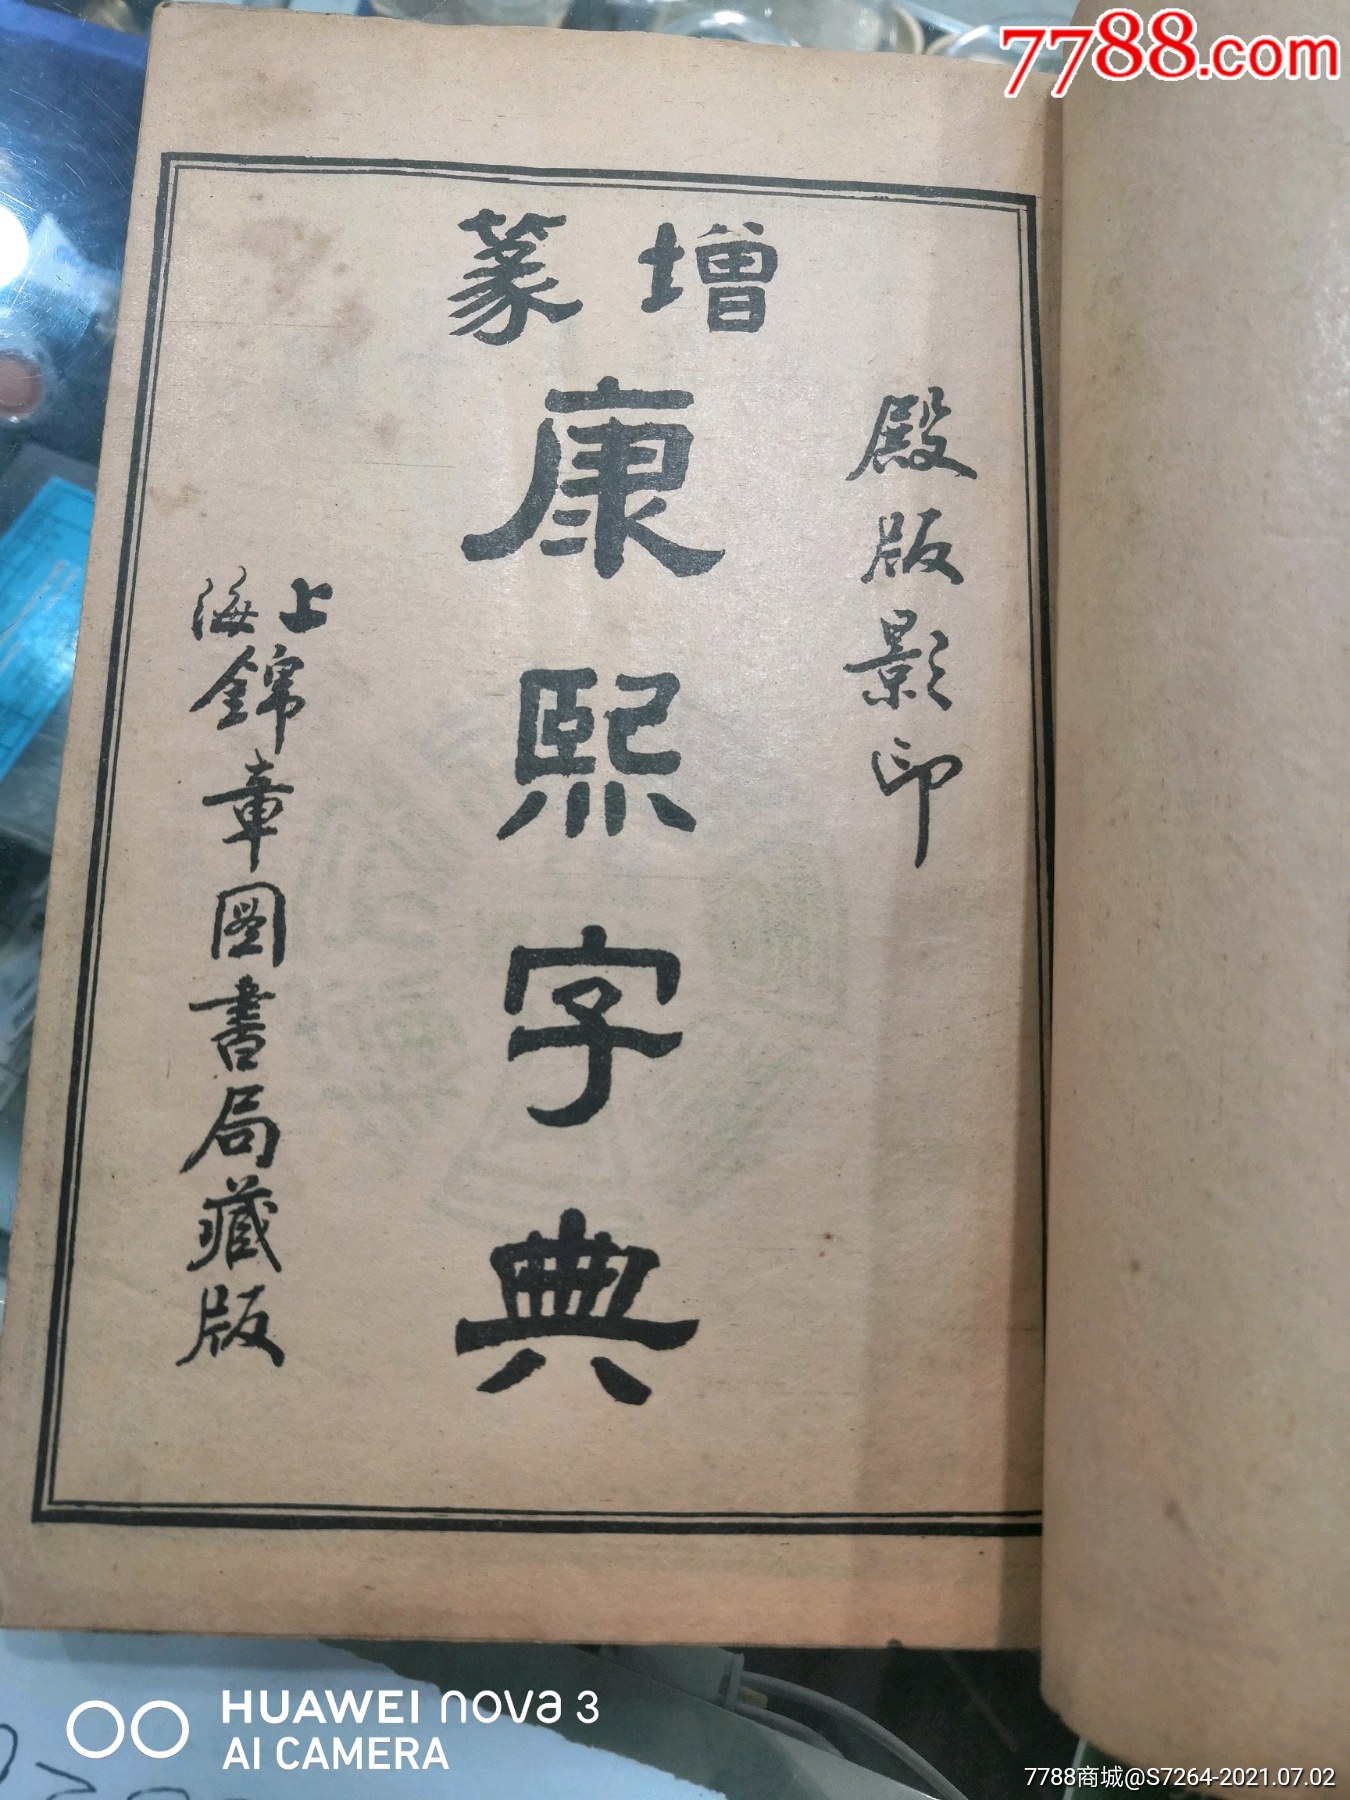 7788.com
殿版影印
增篆
康熙字典
上海錦章圖書局藏版
HUAWEI nova 3
AI CAMERA
7788商城@S7264-2021.07.02